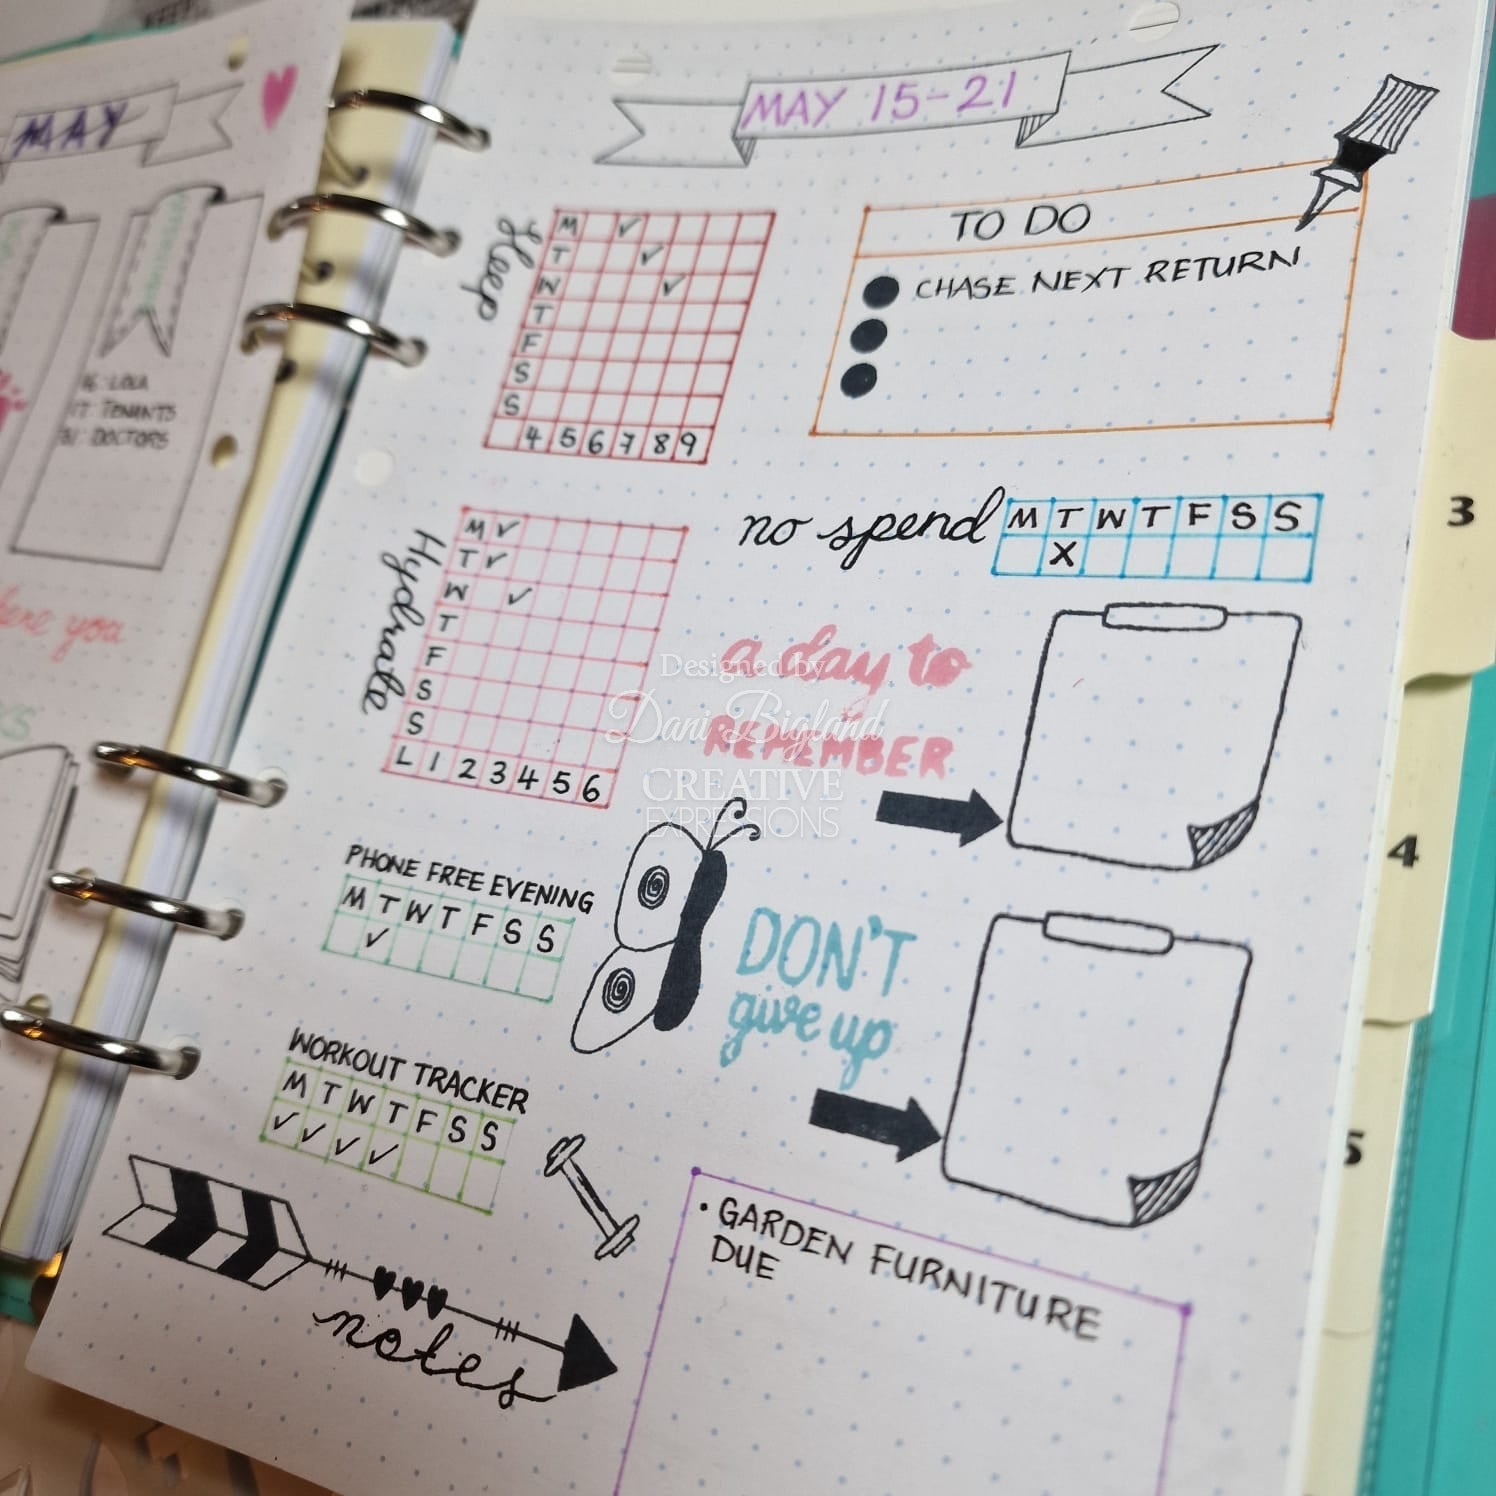 MAY
16: LOLA
17: TENANTS
31: DOCTORS
here you
MAY 15-21
Sleep
M
T
W
T
F
S
S
4 5 6 7 8 9
TO DO
CHASE NEXT RETURN
Hydrate
M
T
W
T
F
S
S
L 1 2 3 4 5 6
no spend M T W T F S S
X
a day to
REMEMBER
Designed by
Dani Bigland
CREATIVE
EXPRESSIONS
PHONE FREE EVENING
M T W T F S S
DON'T
give up
WORKOUT TRACKER
M T W T F S S
notes
• GARDEN FURNITURE
DUE
3
4
5